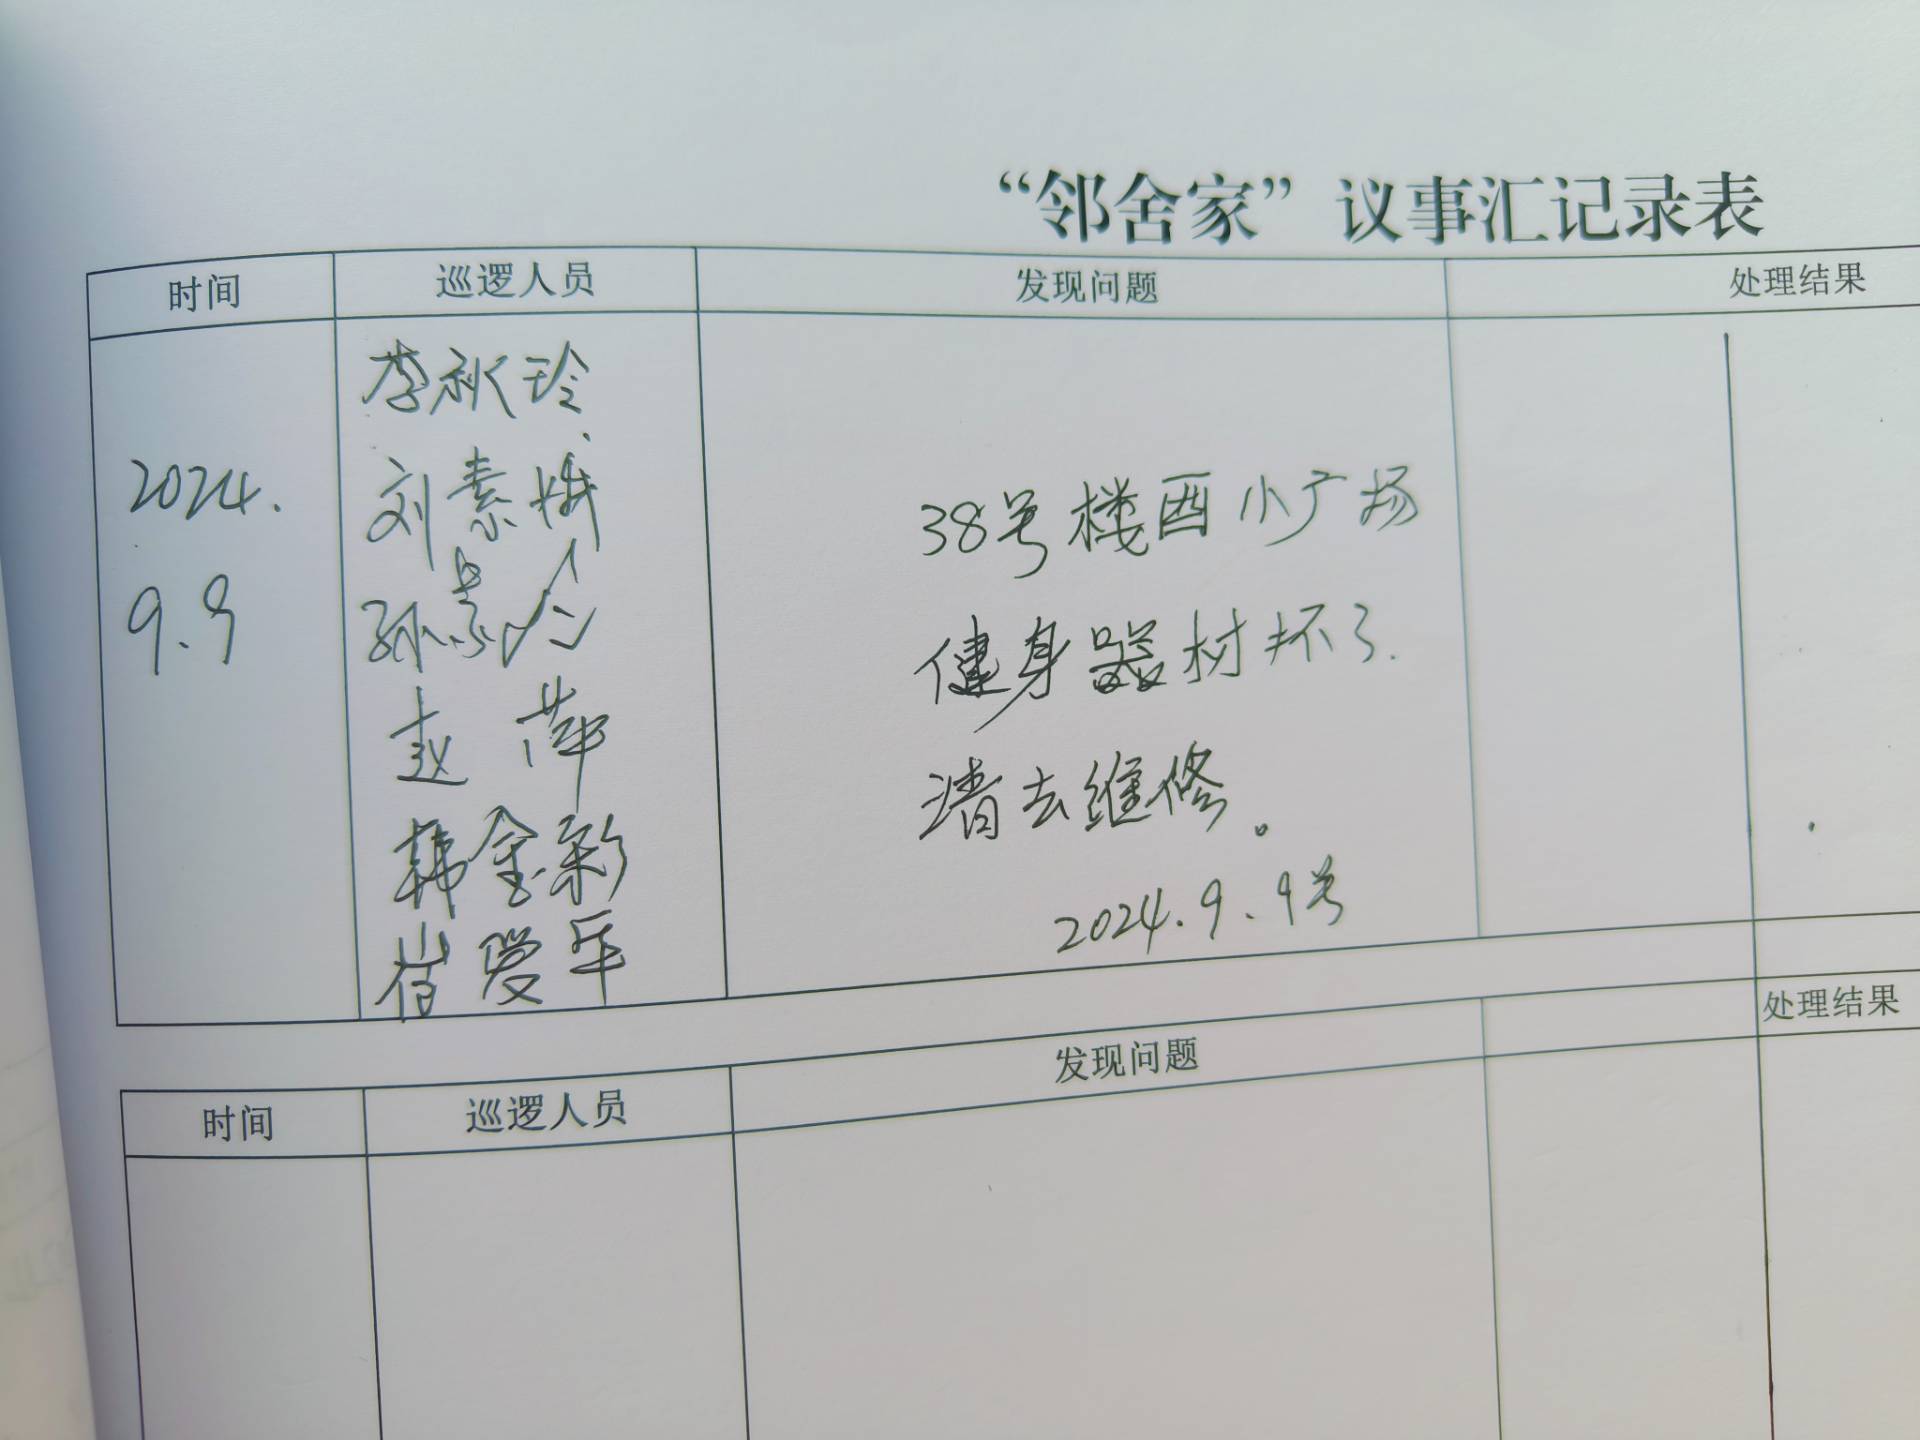 “邻舍家”议事汇记录表
时间 巡逻人员 发现问题 处理结果
李秋玲
刘素娥
孙景
赵萍
韩金彩
崔爱军
2024.
9.9
38号楼西小广场
健身器材坏了.
请去维修。
2024.9.9号
时间 巡逻人员 发现问题 处理结果